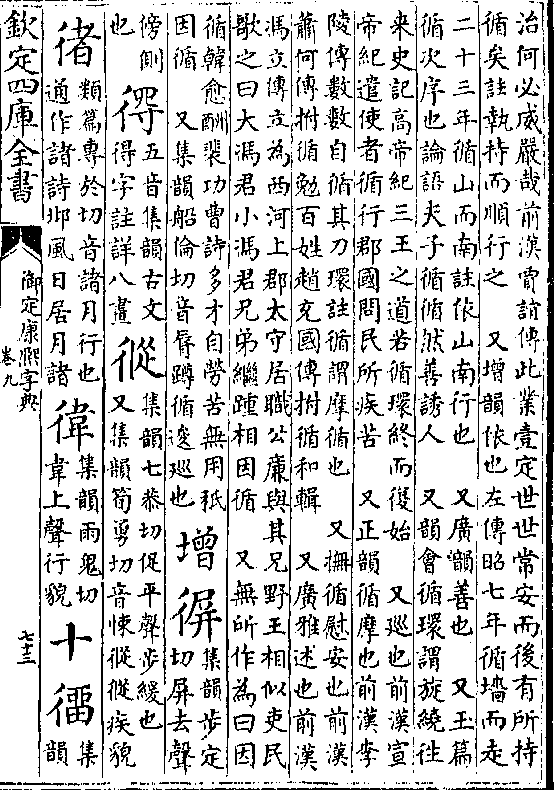 治何必威嚴哉前漢賈誼傳此業壹定世世常安而後有所持
循矣註執持而順行之　又增韻依也左傳昭七年循墻而走
二十三年循山而南註依山南行也　又廣韻善也　又玉篇
循次序也論語夫子循循然善誘人　又韻會循環謂旋繞往
来史記高帝紀三王之道若循環終而復始　又巡也前漢宣
帝紀遣使者循行郡國問民所疾苦　又正韻循摩也前漢李
陵傳數數自循其刀環註循謂摩循也　又撫循慰安也前漢
蕭何傳拊循勉百姓趙充國傳拊循和輯　又廣雅述也前漢
馮立傳立為西河上郡太守居職公廉與其兄野王相似吏民
歌之曰大馮君小馮君兄弟繼踵相因循　又無所作為曰因
循韓愈酬裴功曹詩多才自勞苦無用秖
因循　又集韻船倫切音脣蹲循逡巡也
增
集韻步定
切屏去聲
傍側
也
五音集韻古文
得字註詳八畫
集韻七恭切促平聲步緩也
又集韻筍勇切音悚從從疾貌
類篇專於切音諸月行也
通作諸詩邶風日居月諸
徫
集韻雨鬼切
韋上聲行貌
十
集
韻
欽定四庫全書
御定康熙字典
卷九
七十三